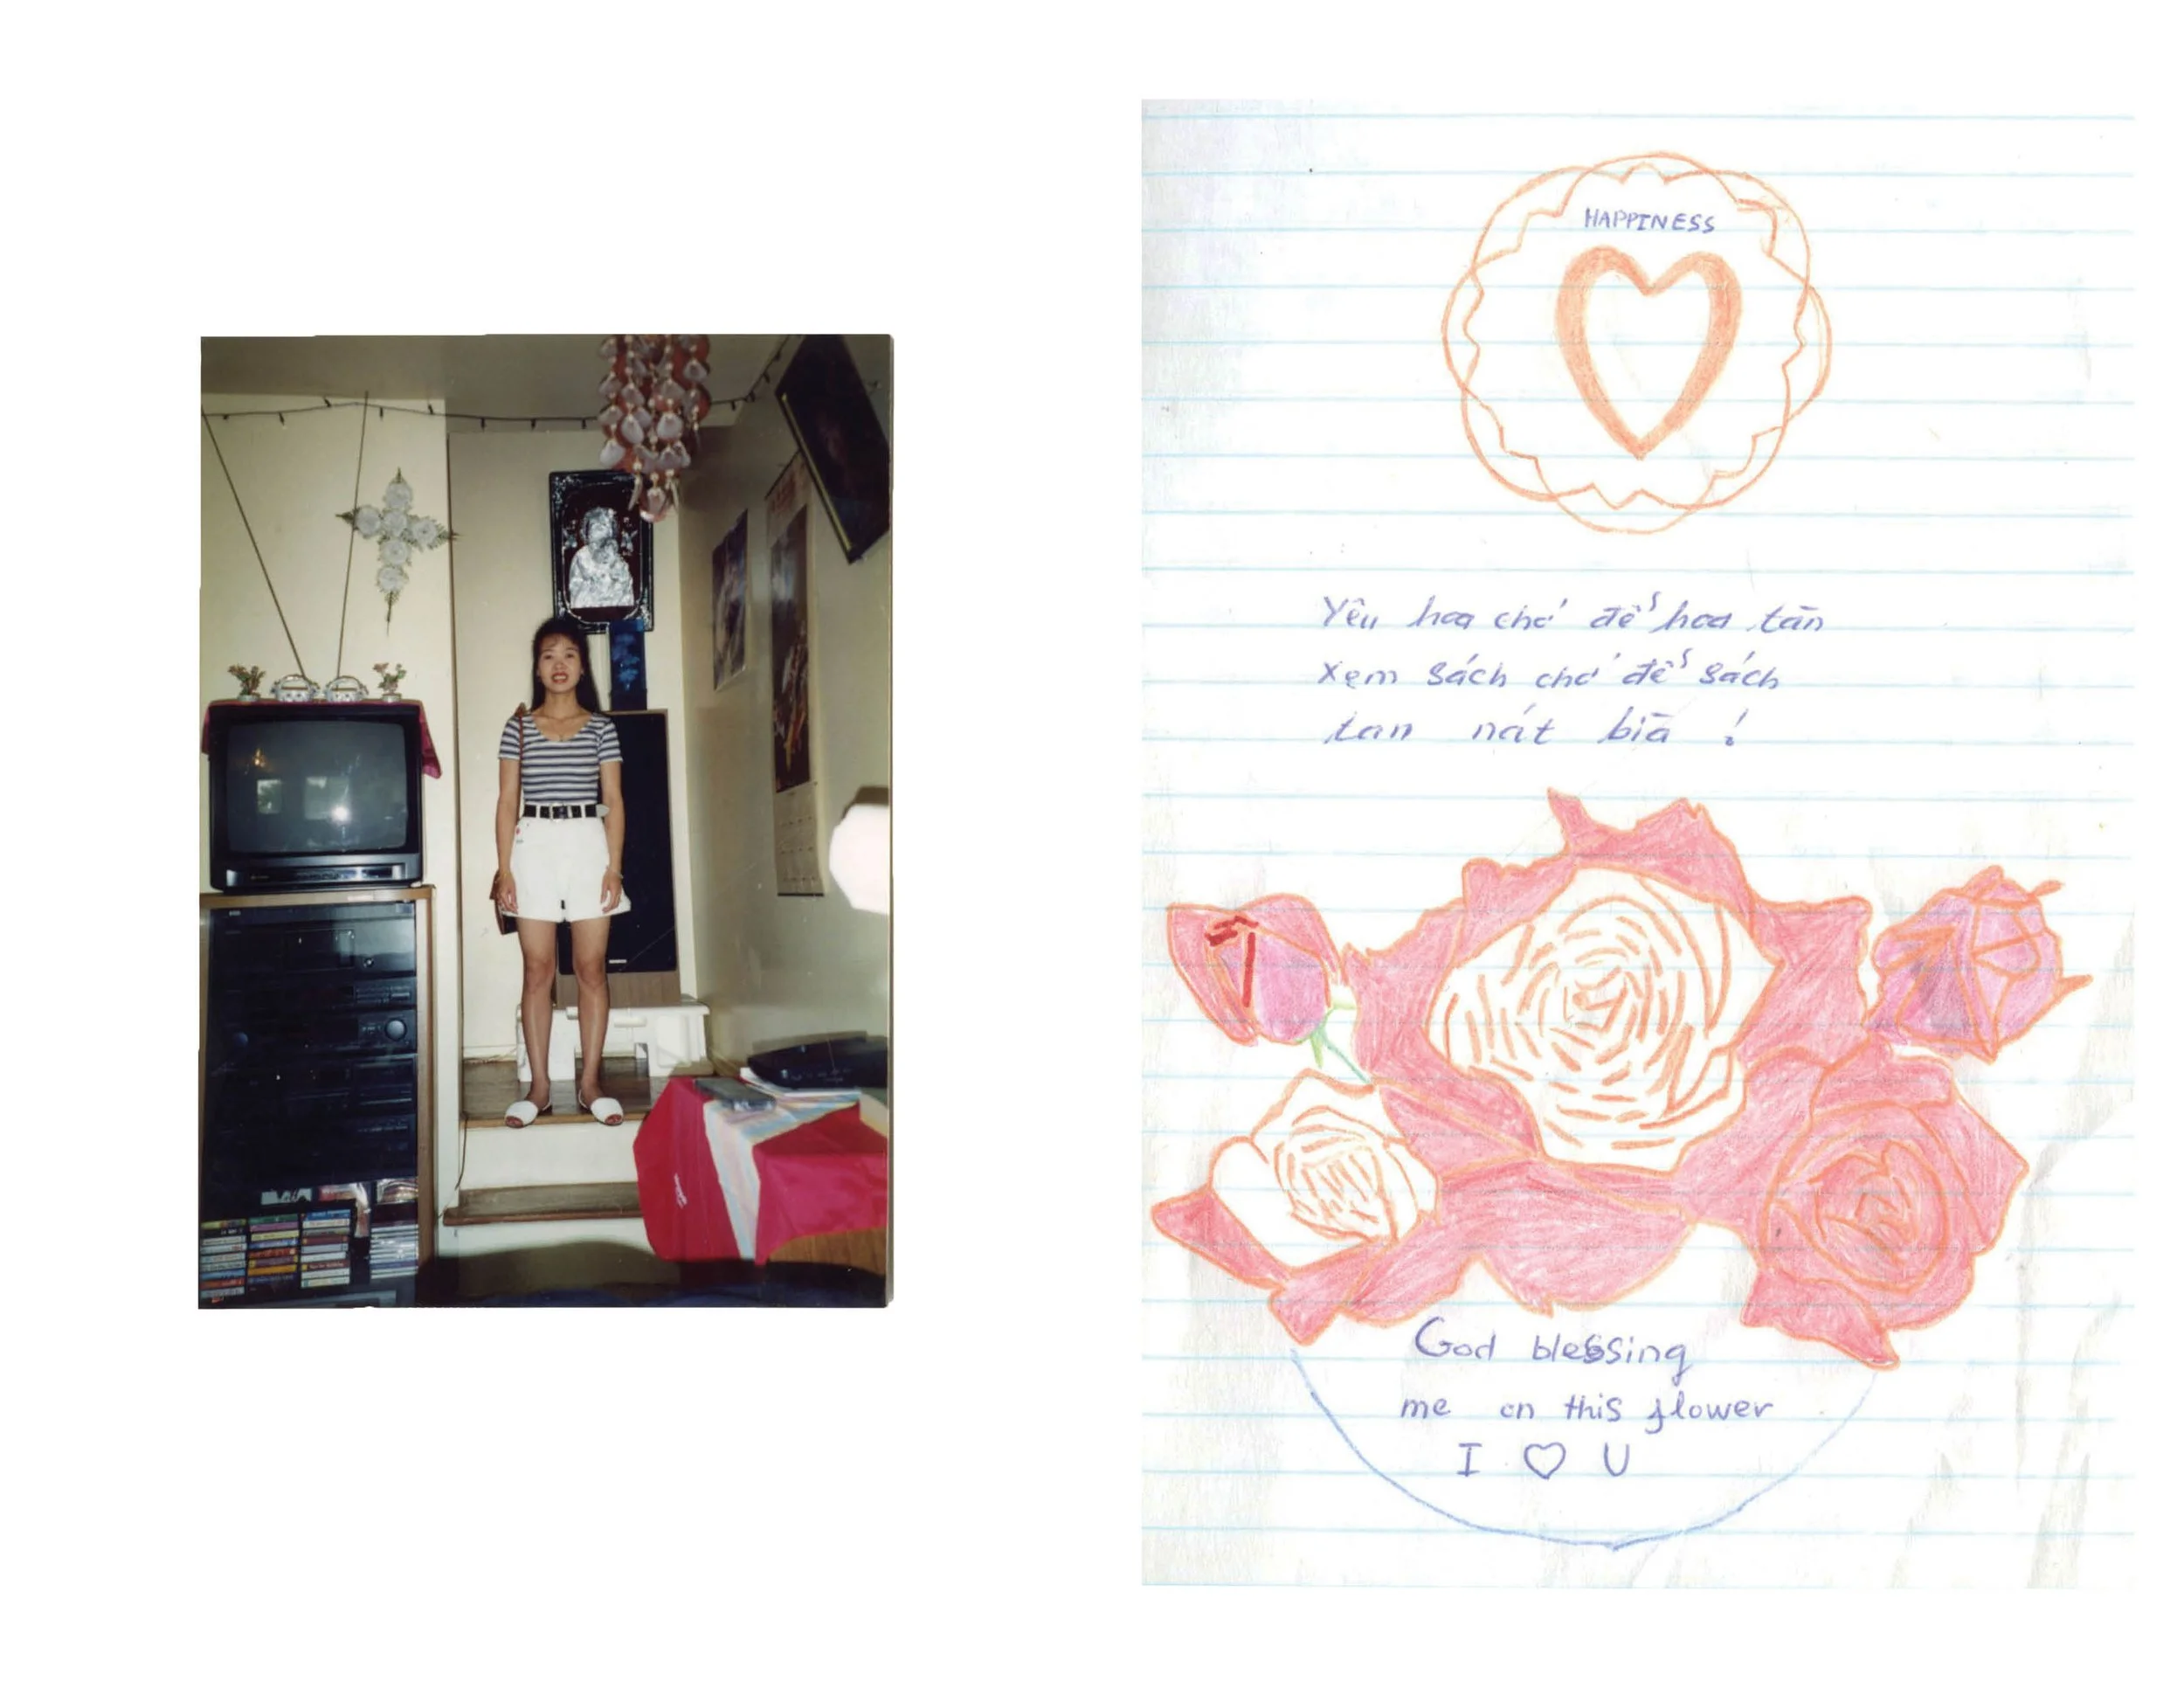 HAPPINESS
Yêu hoa chớ để hoa tàn
Xem sách chớ để sách
tan nát bìa !
God blessing
me on this flower
I ♡ U